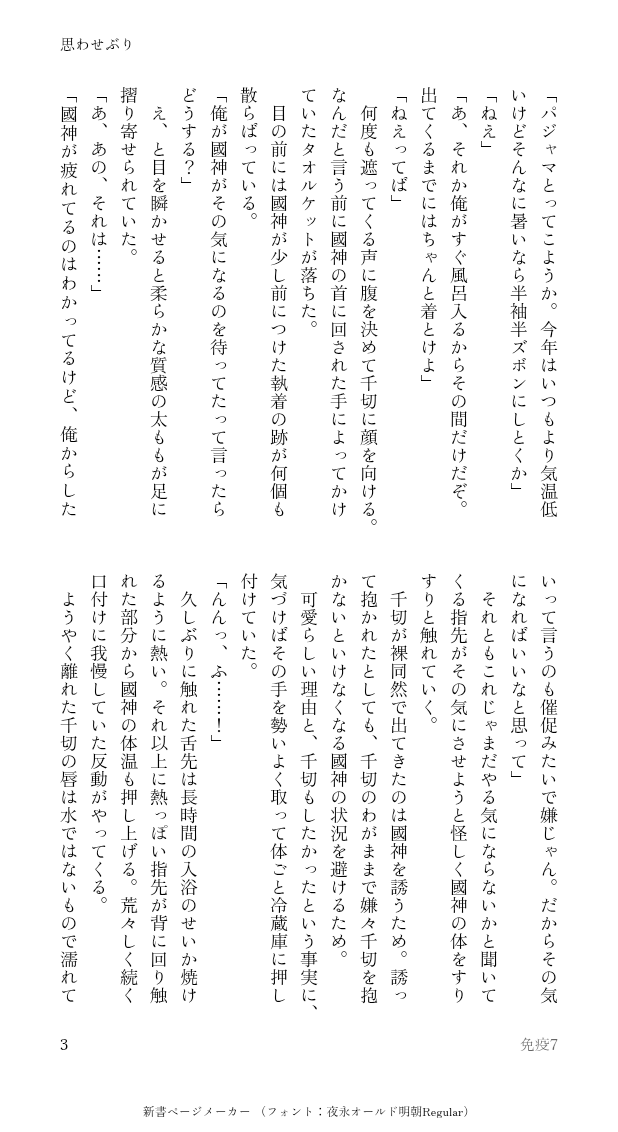 思わせぶり
「パジャマとってこようか。今年はいつもより気温低
いけどそんなに暑いなら半袖半ズボンにしとくか」
「ねえ」
「あ、それか俺がすぐ風呂入るからその間だけだぞ。
出てくるまでにはちゃんと着とけよ」
「ねえってば」
　何度も遮ってくる声に腹を決めて千切に顔を向ける。
なんだと言う前に國神の首に回された手によってかけ
ていたタオルケットが落ちた。
　目の前には國神が少し前につけた執着の跡が何個も
散らばっている。
「俺が國神がその気になるのを待ってたって言ったら
どうする？」
　え、と目を瞬かせると柔らかな質感の太ももが足に
摺り寄せられていた。
「あ、あの、それは……」
「國神が疲れてるのはわかってるけど、俺からした
いって言うのも催促みたいで嫌じゃん。だからその気
になればいいなと思って」
　それともこれじゃまだやる気にならないかと聞いて
くる指先がその気にさせようと怪しく國神の体をすり
すりと触れていく。
　千切が裸同然で出てきたのは國神を誘うため。誘っ
て抱かれたとしても、千切のわがままで嫌々千切を抱
かないといけなくなる國神の状況を避けるため。
　可愛らしい理由と、千切もしたかったという事実に、
気づけばその手を勢いよく取って体ごと冷蔵庫に押し
付けていた。
「んんっ、ふ……！」
　久しぶりに触れた舌先は長時間の入浴のせいか焼け
るように熱い。それ以上に熱っぽい指先が背に回り触
れた部分から國神の体温も押し上げる。荒々しく続く
口付けに我慢していた反動がやってくる。
　ようやく離れた千切の唇は水ではないもので濡れて
3
免疫7
新書ページメーカー （フォント：夜永オールド明朝Regular）